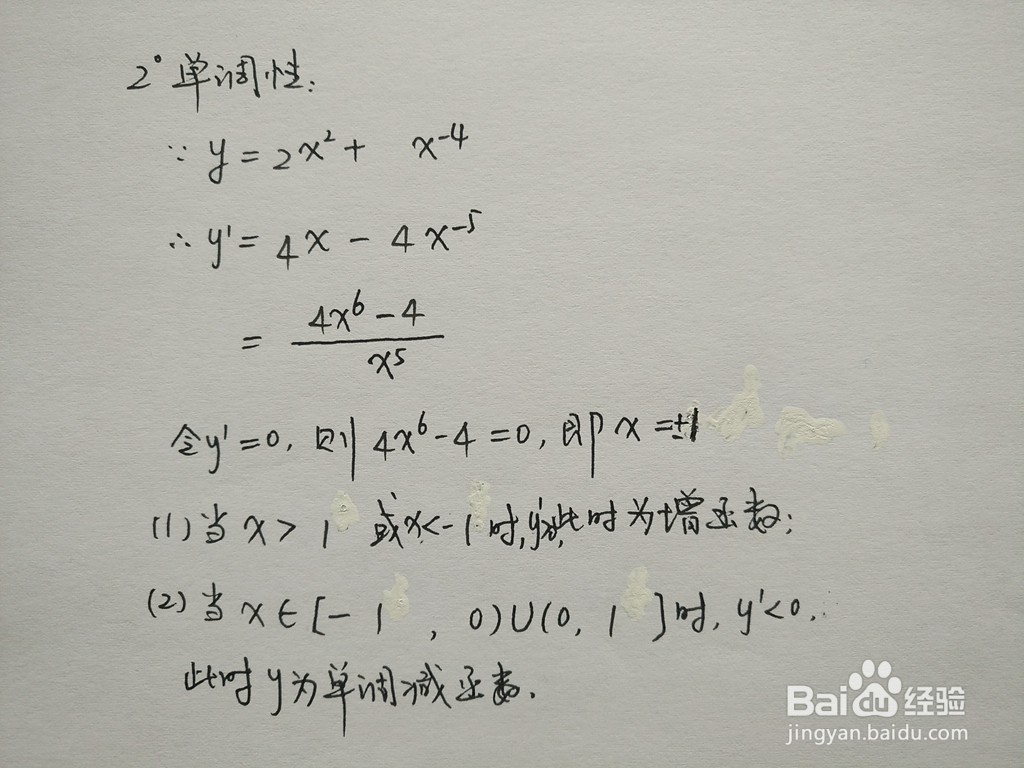 2° 单调性:
∵ y = 2x² + x⁻⁴
∴ y' = 4x - 4x⁻⁵
= (4x⁶ - 4)/x⁵
令y'=0, 则 4x⁶-4=0, 即 x=±1
(1) 当 x > 1 或x<-1时, 此时为增函数;
(2) 当 x∈[-1, 0)∪(0, 1]时, y'<0,
此时y为单调减函数.
Baidu经验
jingyan.baidu.com